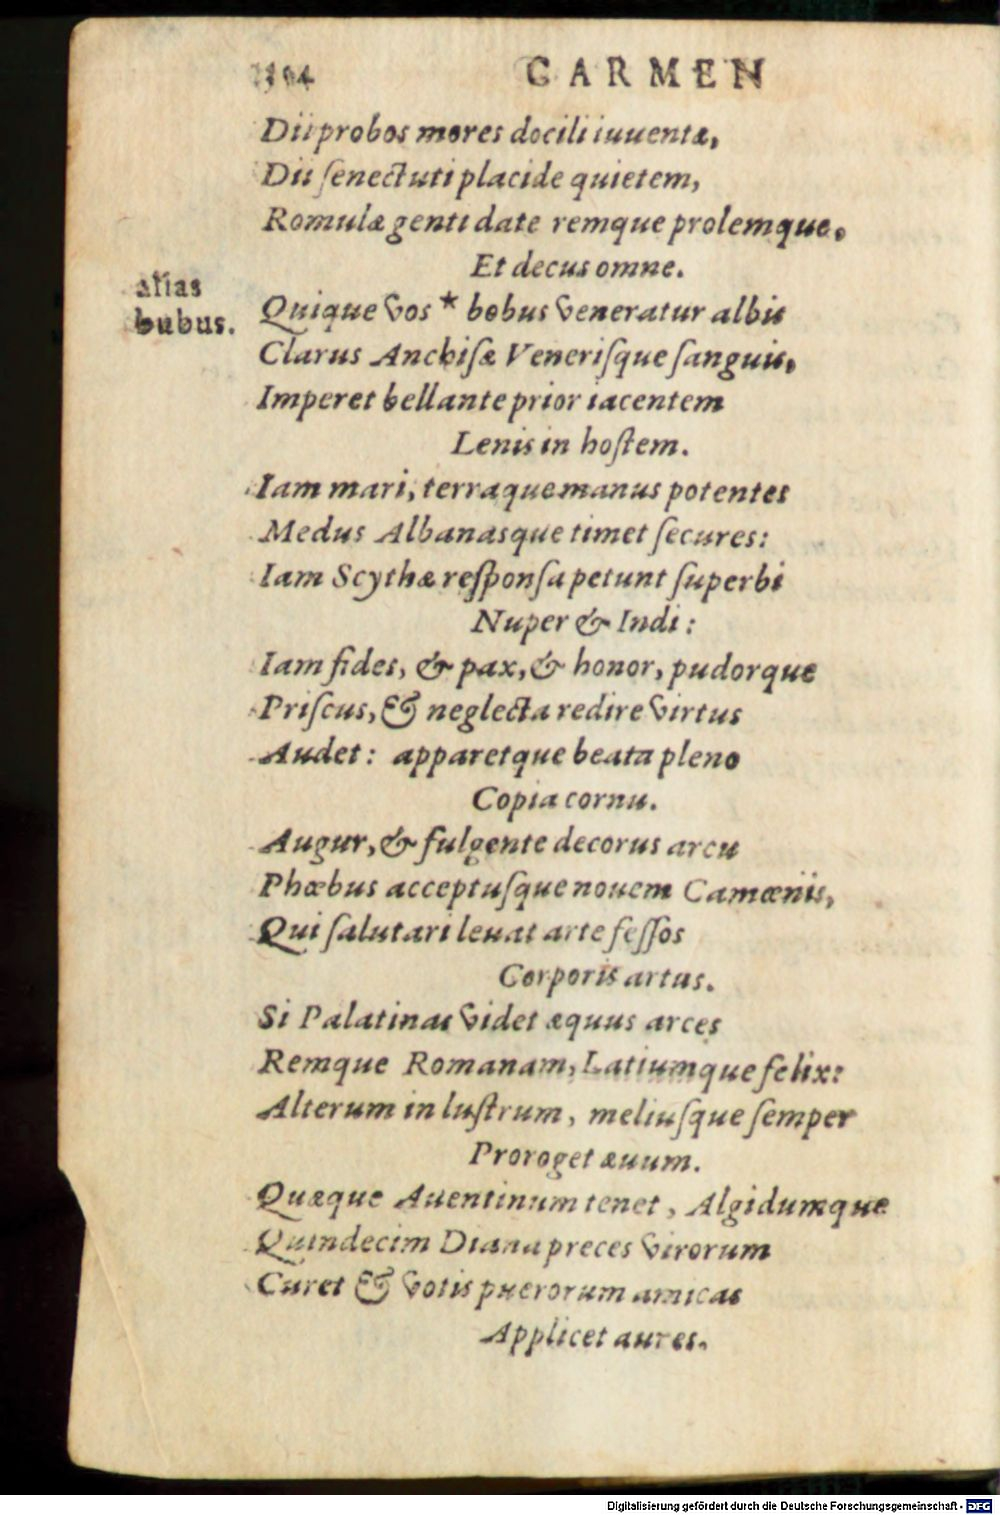 104 CARMEN
Dii probos mores docili iuuentæ,
Dii ſenectuti placide quietem,
Romulæ genti date remque prolemque,
Et decus omne.
alias
bubus.
Quique vos * bobus veneratur albis
Clarus Anchiſæ Veneriſque ſanguis,
Imperet bellante prior iacentem
Lenis in hoſtem.
Iam mari, terraque manus potentes
Medus Albanasque timet ſecures:
Iam Scythæ reſponſa petunt ſuperbi
Nuper & Indi:
Iam fides, & pax, & honor, pudorque
Priſcus, & neglecta redire virtus
Audet: apparetque beata pleno
Copia cornu.
Augur, & fulgente decorus arcu
Phœbus acceptuſque nouem Camœnis,
Qui ſalutari leuat arte feſſos
Corporis artus.
Si Palatinas videt æquus arces
Remque Romanam, Latiumque felix:
Alterum in luſtrum, meliuſque ſemper
Proroget æuum.
Quæque Auentinum tenet, Algidumque
Quindecim Diana preces virorum
Curet & votis puerorum amicas
Applicet aures.
Digitalisierung gefördert durch die Deutsche Forschungsgemeinschaft - DFG